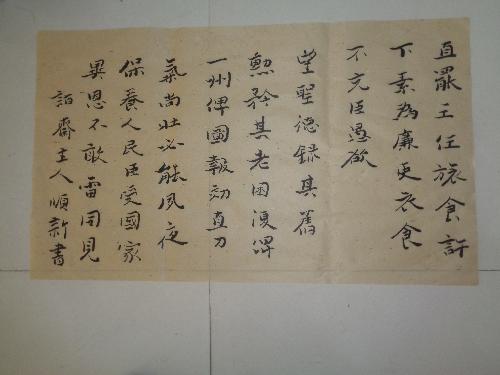 直罷王任旅食許
下素為廉吏衣食
不充臣愚欲
望聖德錄其舊
勳矜其老困復俾
一州俾圖報効直力
氣尚壯必能夙夜
保養人民臣受國家
異恩不敢雷同見
齋主人順新書